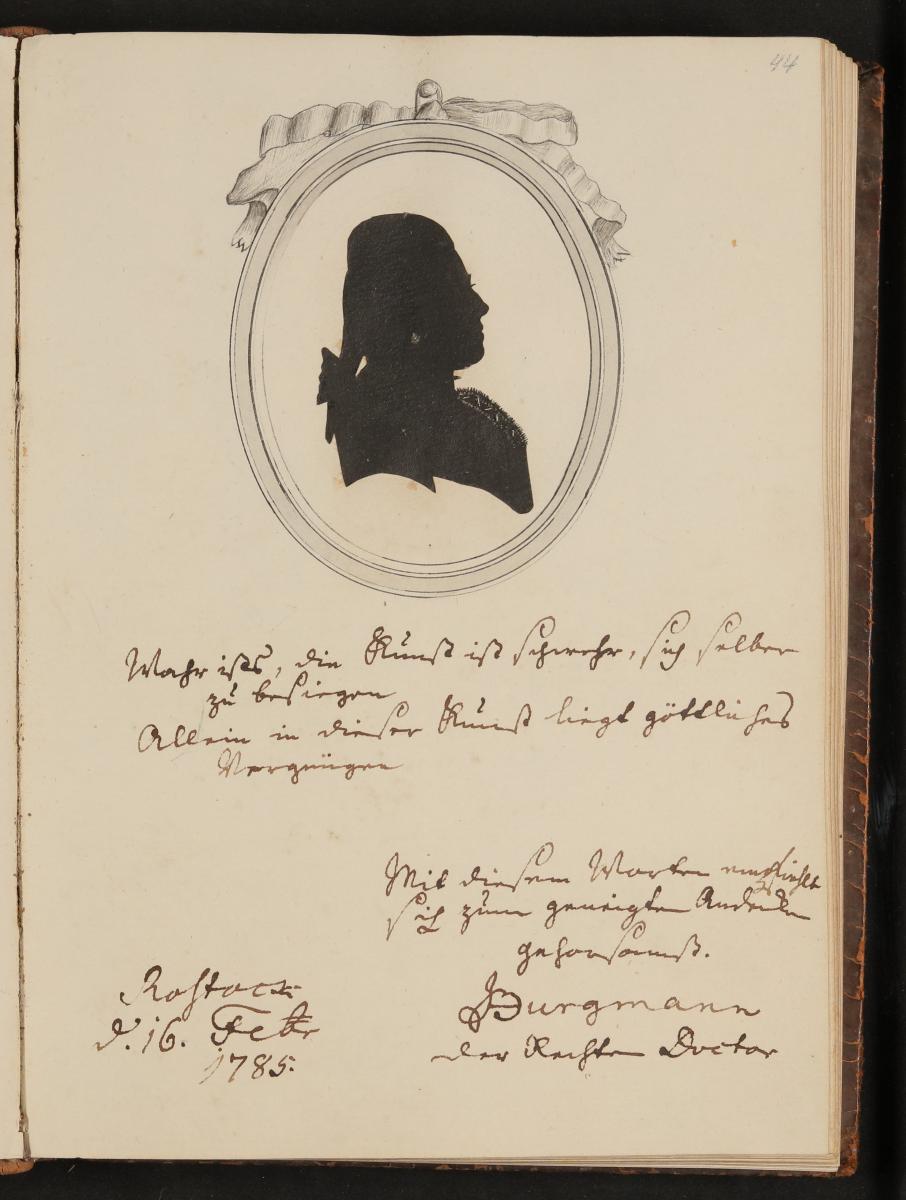 44
Wahr ists, die Kunst ist schwehr, sich selber
zu besiegen
Allein in dieser Kunst liegt göttliches
Vergnügen
Mit diesen Worten empfiehlt
sich zum geneigten Andenken
gehorsamst.
Rostock
d. 16. Febr
1785.
Burgmann
der Rechten Doctor